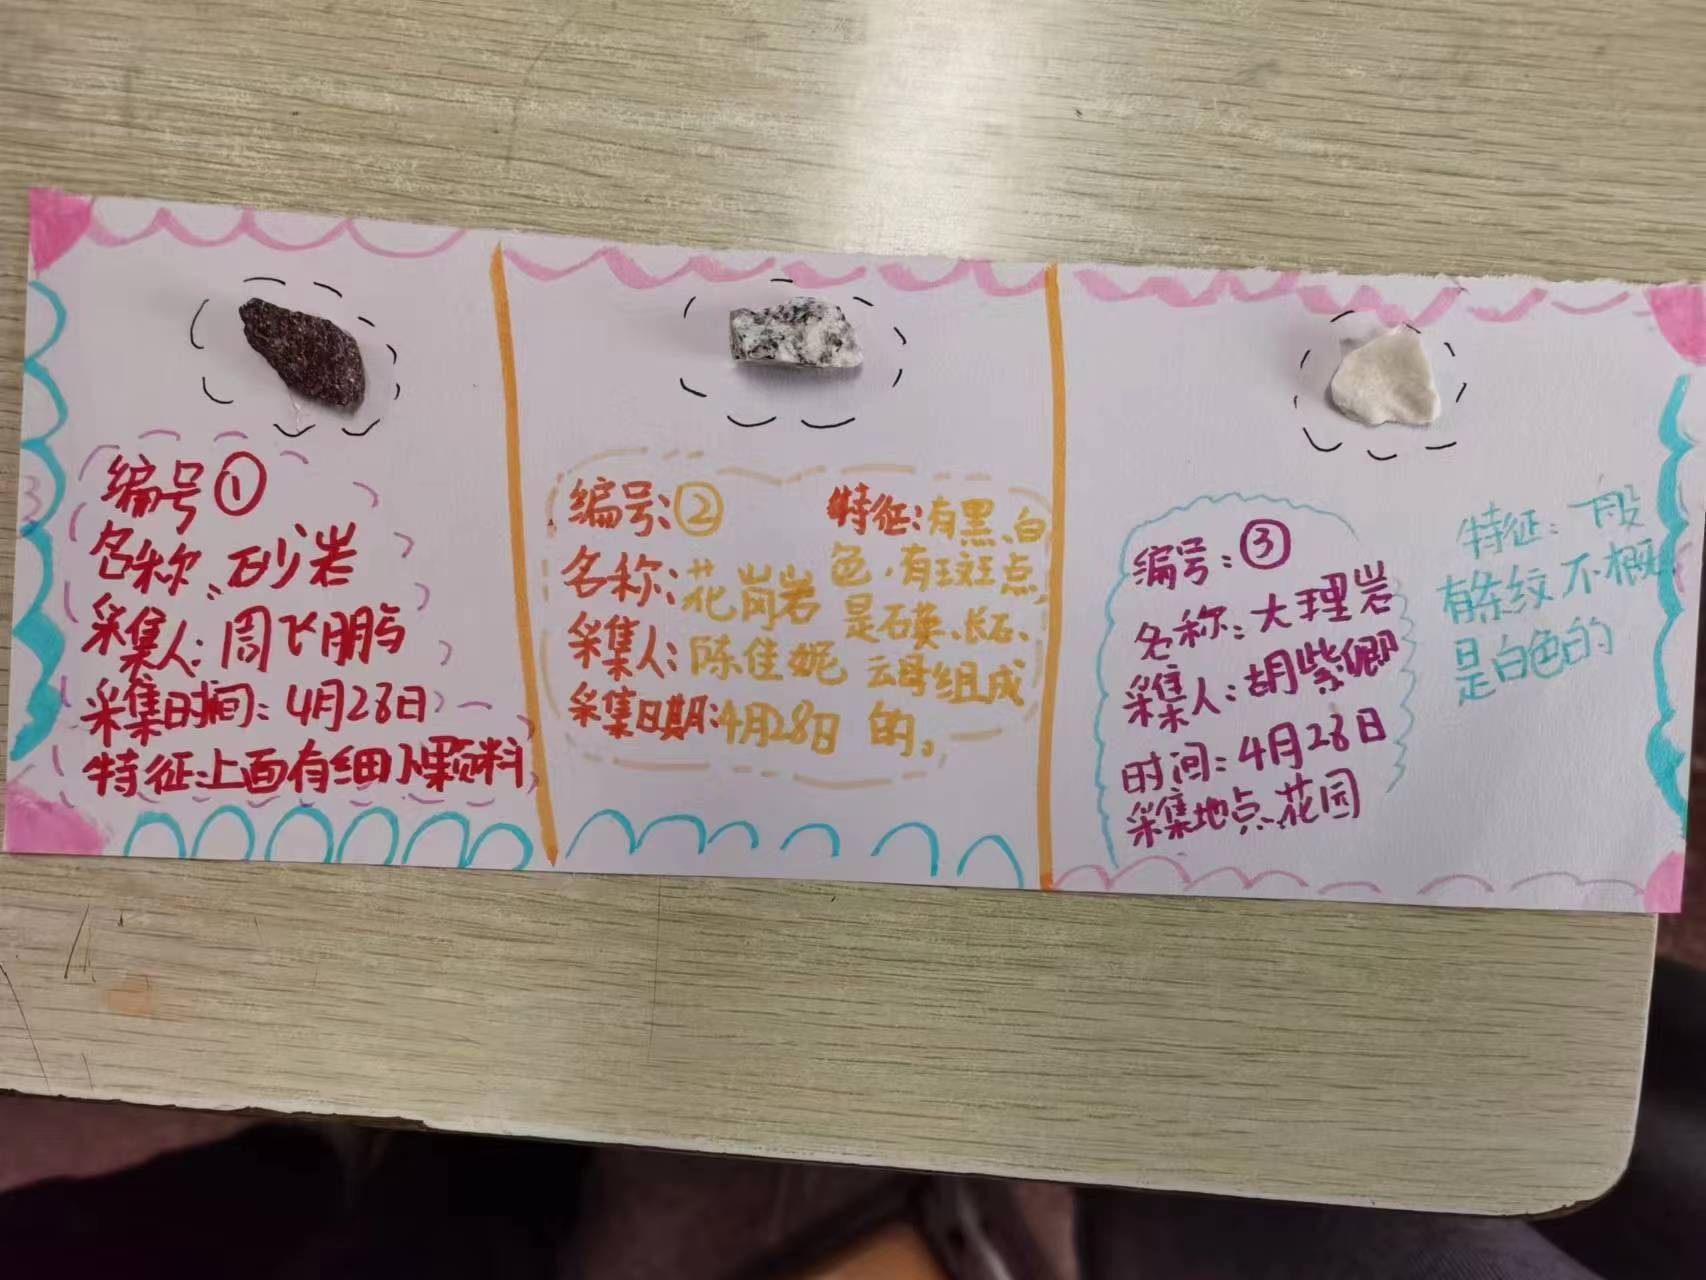 编号①
名称:砂岩
采集人:周飞鹏
采集时间:4月28日
特征:上面有细小颗料
编号:②
名称:花岗岩
采集人:陈佳妮
采集日期:4月28日
特征:有黑、白
色,有斑点,
是石英、长石、
云母组成
的。
编号:③
名称:大理岩
采集人:胡紫卿
时间:4月28日
采集地点:花园
特征:一般
有条纹不概
是白色的